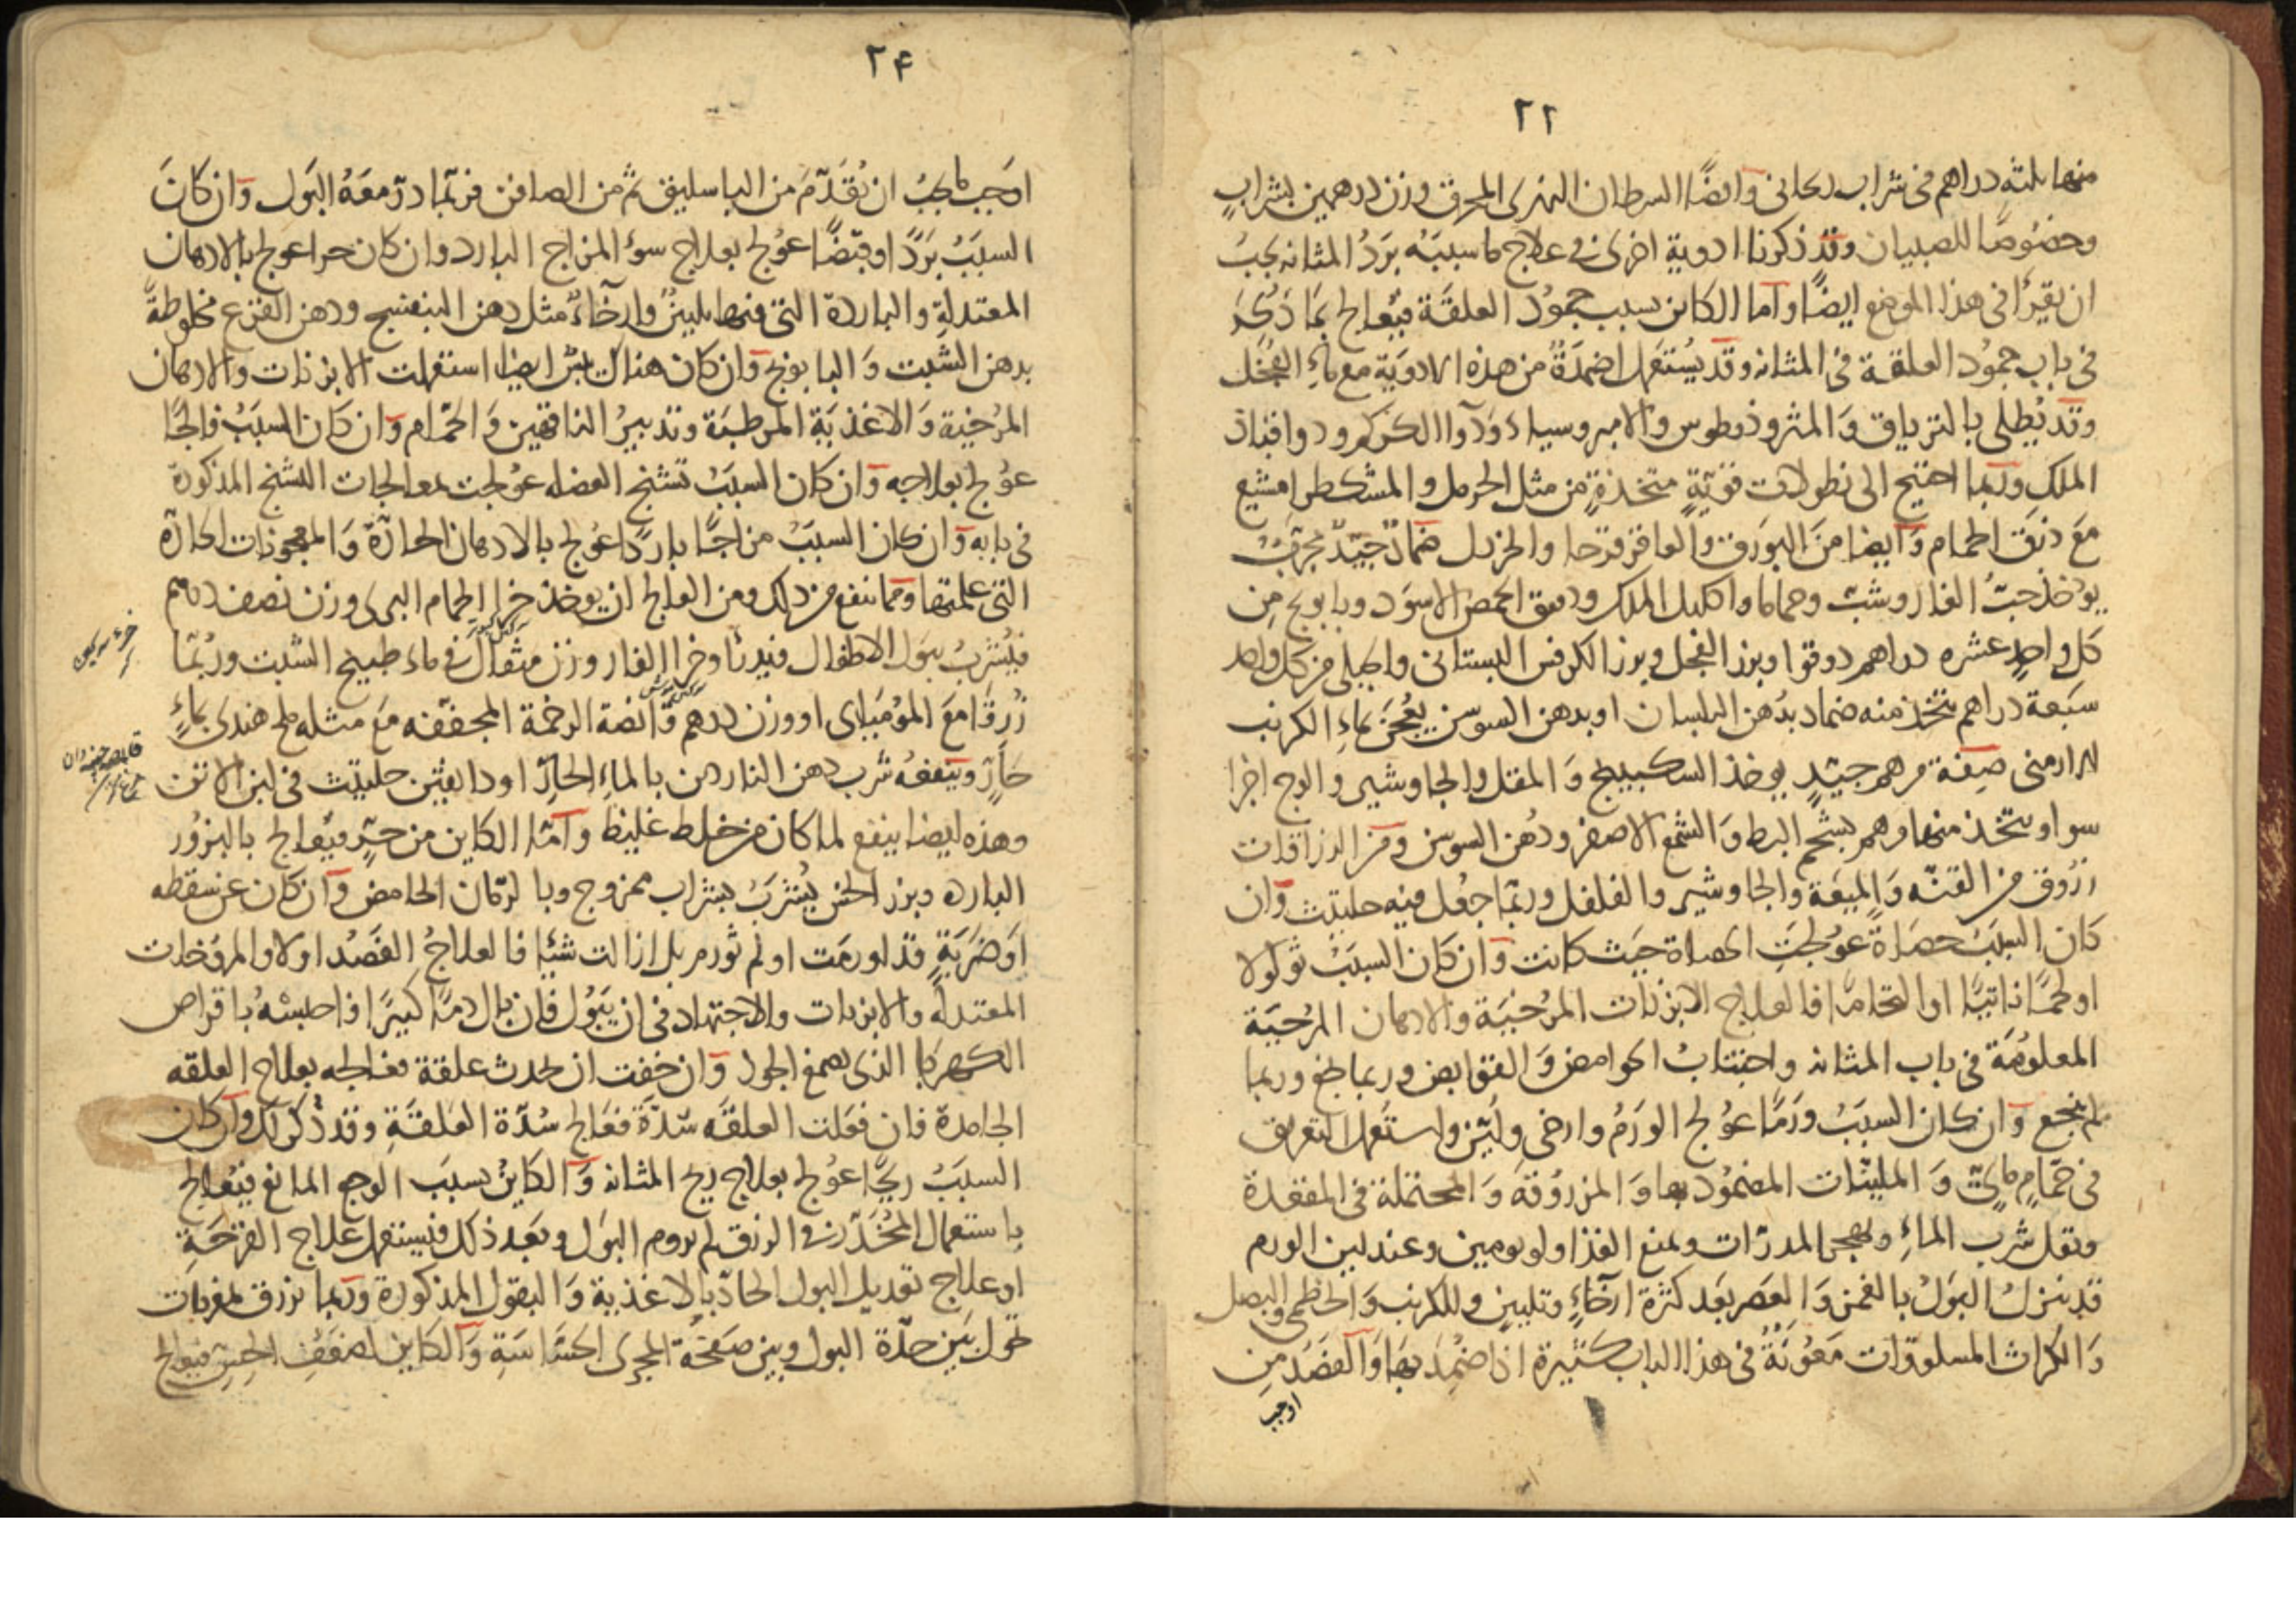 ٢٢
منها ثلثه دراهم فى شراب ريحانى وايضًا السرطان النهرى المحرق وزن درهمين بشرابٍ
وخصُوصًا للصبيان وقد ذكرنا ادوية اخرى فى علاج ما سببَهُ بَردُ المثانه يجبُ
ان يقرأ فى هذا الموضع ايضًا واما الكاين بسبب جمُود العلقَة فيُعالج بمَا ذكرَ
فى باب جمُود العلقة فى المثانه وقد يُستعَمل اضمَدَةٌ من هذه الادوَيَة مع ماءِ الفجْل
وقد يُطلى بالترياق وَالمثروذيطوس والامروسياء وَدَوآ الكركم ودوا قباذ
الملك وربما احتيج الى نطولات قويّةٍ متخذةٍ من مثل الحرمل والمشكطرامشيع
مَع ذرَق الحمام وَايضا منَ البورَق والعاقرقرحا والخردل ضمادٌ جيّدٌ مجرّبٌ
يوخذ حبّ الغار وشبت وحماما واكليل الملك ودقيق الحمص الاسوَد وبابونج من
كل واحدٍ عشره دراهم دوقوا وبزر الفجل وبزر الكرفس البستانى والجبلى من كل واحد
سبَعة دراهم يتخذ منه ضماد بدُهن البلسان اوبدهن السوسن يعُجَن بماءِ الكرنب
الارمنى صِفَة مرهم جيّدٍ يوخذ السكبينج وَالمقل والجاوشير والوج اجزا
سوا ويتخذ منها مرهم بشحم البط وَالشمع الاصفر ودُهن السوسن ومن الزراقات
زرُوق من القنّه وَالميعَة والجاوشير والفلفل وربّما جعُل فيه حليتيث وان
كَان السببُ حصَاةً عوُلجَتِ الحصاة حيَث كانت وَان كَان السبَبُ ثولولا
اولحمًا نابتًا او التحامًا فالعلاج الابزنات المرُخيَة والادهان المرُخيَة
المعلومَة فى باب المثانه واجتنابُ الحوامض وَالقوابض وربما نجع وربما
لم ينجع وَان كان السببُ ورَمًا عوُلج الورَمُ وارخى وليّن واستعَمل التعريق
فى حمّامٍ مائىّ وَالمليّنات المضمُود بها وَالمزروقَة وَالمحتملة فى المقعَدة
ويقل شرب الماءِ ويهجر المدرّات ويمنع الغذا ولو يومين وعند لين الورم
قد ينزل البَولُ بالغمز وَالعصر بَعد كثرة ارخاءٍ وتليينٍ وللكرنب وَالخطمى والبصل
وَالكراث المسلوقات مَعُونَةٌ فى هذا الباب كثيرة اذا ضمُدَ بهَا وَالفصَدُ من
اوجب
٢۴
اوجَب مايجبُ ان يُقَدّمَ من الباسليق ثم من الصافن فربّما درّ معَهُ البَول وَان كَانَ
السببُ بَردًا اوقبضًا عوُلج بعلاج سوء المزاج البارد وان كان حرا عوُلج بالادهان
المعتدلةِ والباردة التى فيها تليينٌ وارخآءٌ مثل دهن البنفسج ودهن القرع مخلوطةً
بدهن الشبت وَالبابونج وَان كان هناك يبسٌ ايضا استعملت الابزنات والادهان
المرُخيَة وَالاغذيَةِ المرطبَة وتدبيرُ الناقهين وَالحمّام وَان كَان السببُ فالجًا
عوُلج بعلاجه وَان كان السببُ تشنج العضله عوُلجت بمعالجات التشنج المذكورة
فى بابه وَان كان السببُ مزاجًا باردًا عوُلج بالادهان الحارّة وَالمعجونات الحارّة
التى علمتها ومما ينفع من ذلك ومن الفالج ان يوخذ خرا الحمام البرى وزن نصف درهم
فيُشربُ ببَول الاطفال فيبرئ او خرا الفار وزن مثقال فى ماء طبيخ الشبت وربُمّا
زُرقَا مَعَ المومياى او وزن درهم قانصة الرخمة المجففه مَع مثله ملح هندى بماءٍ
حَارّ وينفعهُ شرب دهن الناردين بالماءِ الحارّ او دانقين حليتيث فى لبن الاتن
وهذه ايضا ينفع لما كان من خلط غليظ وَامّا الكاين من حرٍّ فيُعالج بالبزُور
البارده وبزر الخس يُشربُ بشراب ممزوج وبالرمّان الحامض وَان كان عن سقطه
اوضَربَةٍ قد اورمَت اولم تورم بل ازالت شئِا فالعلاجُ الفَصُد اولا والمرخيات
المعتدله والابزنات والاجتهاد فى ان يَبوُل فان بال دمًا كثيرًا فاحبسُهُ باقراص
الكهربا الذى بصمغ الجوز وَان خفت ان يحدث علقة فعَالجه بعلاج العلقه
الجامدة فان فعَلت العلقَه سُدّةً فعَالج سُدّة العَلقَةِ وقد ذُكر لك وان كان
السببُ ريحًا عوُلج بعلاج ريح المثانه وَالكاينُ بسبَب الوجع المانع فيُعالج
باستعمال المُخدّر فى الزرق ثم يروم البَول وبَعد ذلك فيستعمل علاج القرحَةِ
اوعلاج تعديل البول الحادّ بالاغذية وَالبقول المذكورة وربما زرق مغريات
تحول بَين حدّة البول وبين صَفحَة المجرَى الحسّاسَةِ وَالكاين لضعَفِ الحِسّ فيعالج
خرء سركين